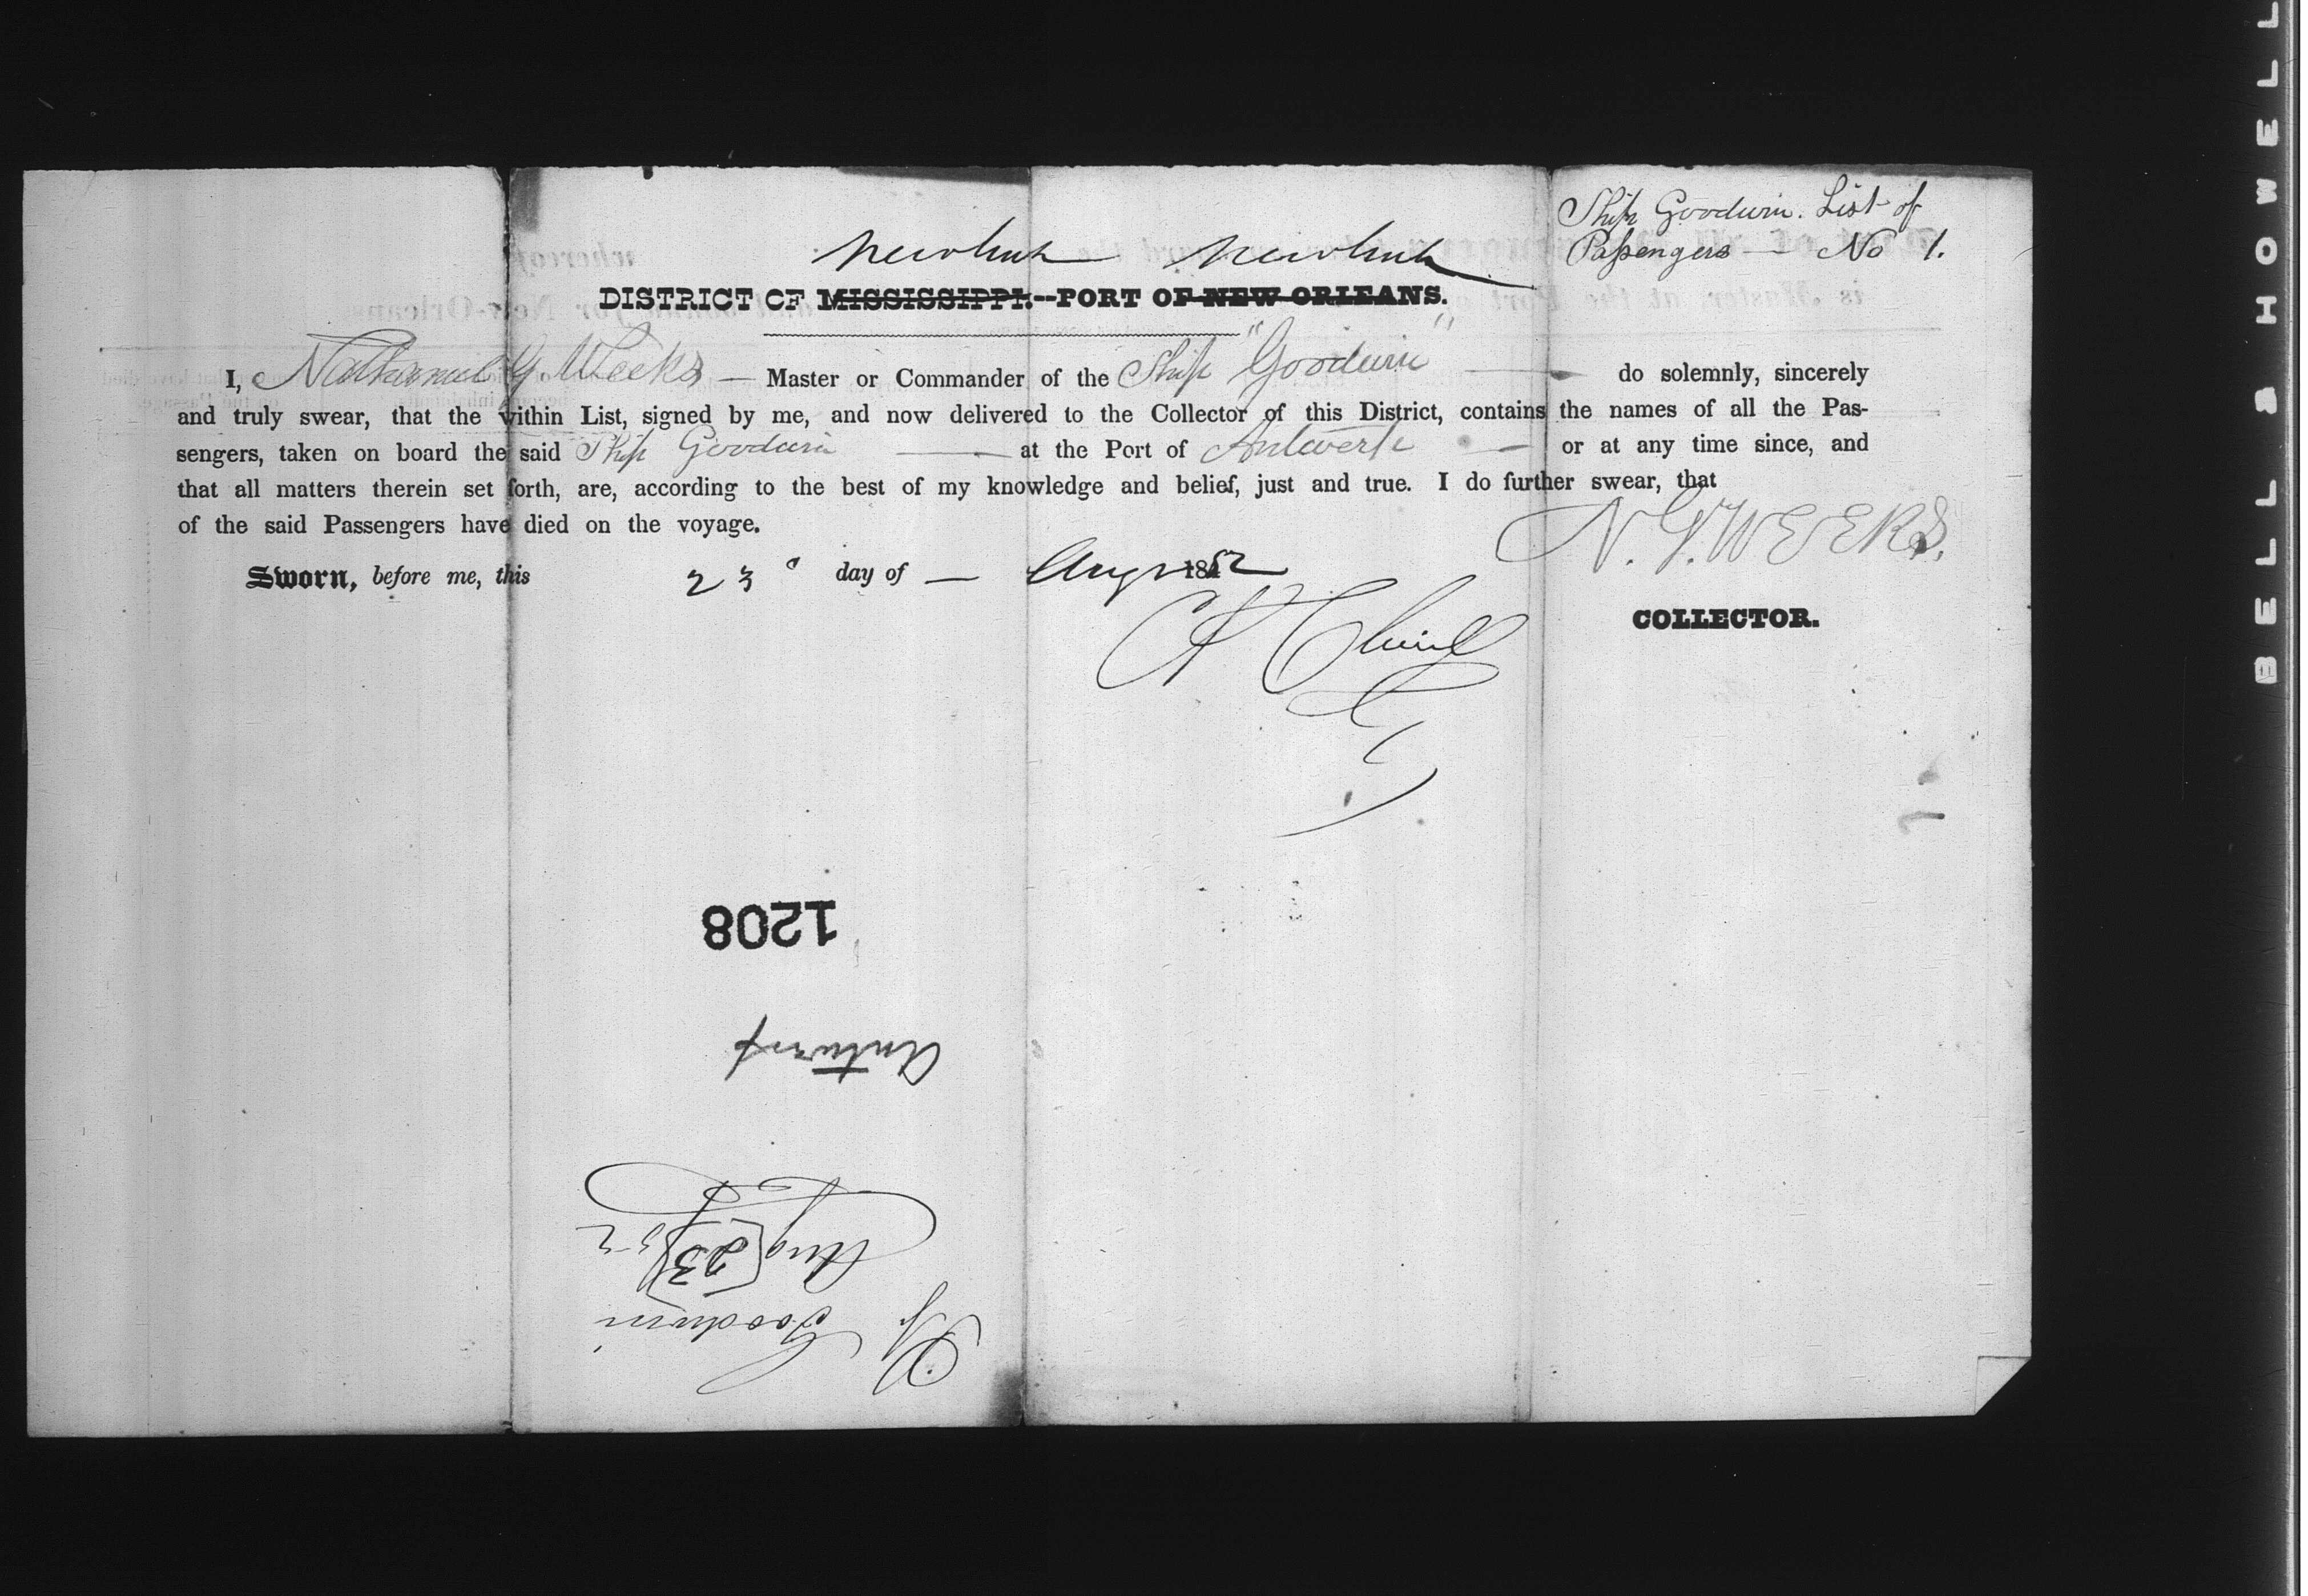 Ship Goodwin. List of
Passengers — No 1.
New York New York
DISTRICT OF MISSISSIPPI.--PORT OF NEW ORLEANS.
I, Nathaniel G. Weeks — Master or Commander of the Ship "Goodwin" — do solemnly, sincerely
and truly swear, that the within List, signed by me, and now delivered to the Collector of this District, contains the names of all the Pas-
sengers, taken on board the said Ship Goodwin — at the Port of Antwerp — or at any time since, and
that all matters therein set forth, are, according to the best of my knowledge and belief, just and true. I do further swear, that
of the said Passengers have died on the voyage.
N. G. WEEKS.
Sworn, before me, this 23d day of — Augt 1852
COLLECTOR.
1208
Antwerp
Aug 23/52
Goodwin
BELL & HOWELL